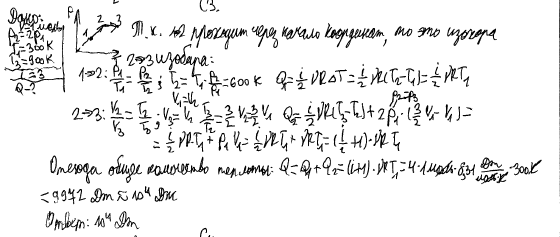 Дано:
p₂=2p₁
T₁=300K
T₃=900K
i=3
Q-?
p
1
2
3
T
Т.к. 1→2 проходит через начало координат, то это изохора
2→3 изобара:
1→2: p₁/T₁ = p₂/T₂; T₂=T₁·p₂/p₁=600K Q₁=i/2 νRΔT=i/2 νR(T₂-T₁)=i/2 νRT₁
V₁=V₂
p₂=p₃
2→3: V₂/V₃=T₂/T₃; V₃=V₁ T₃/T₂=3/2 V₂ 3/2 V₁ Q₂=i/2 νR(T₃-T₂)+2p₁·(3/2 V₁-V₁)=
=i/2 νRT₁+p₁V₁=i/2 νRT₁+νRT₁=(i/2+1)·νRT₁
Отсюда общее количество теплоты: Q=Q₁+Q₂=(i+1)·νRT₁=4·1 моль·8,31 Дж/моль·К·300K
=9972 Дж≈10⁴ Дж
Ответ: 10⁴ Дж